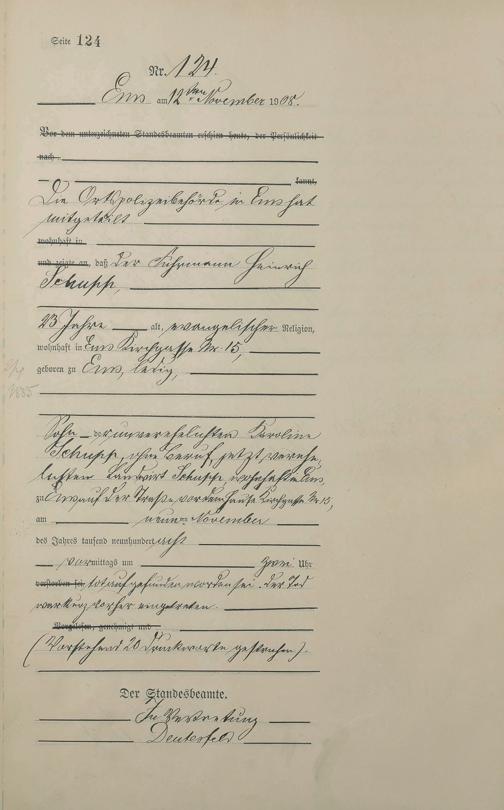 Seite 124
Nr. 124.
Ems am 12ten November 1908.
Vor dem unterzeichneten Standesbeamten erschien heute, der Persönlichkeit
nach
kannt,
Die Ortspolizeibehörde in Ems hat
mitgeteilt
wohnhaft in
und zeigte an, daß der Fuhrmann Heinrich
Schupp,
23 Jahre alt, evangelischer Religion,
wohnhaft in Ems Kirchgasse Nr. 15,
geboren zu Ems, ledig,
1885
Sohn der unverehelichten Karoline
Schupp, ohne Beruf, jetzt verehe-
lichten Schupp, wohnhaft Ems
zu Ems auf der Straße vor dem Hause Kirchgasse Nr 15,
am neunten November
des Jahres tausend neunhundert acht
vormittags um zwei Uhr
verstorben sei, tot aufgefunden worden sei. Der Tod
war kurz vorher eingetreten.
Vorgelesen, genehmigt und
(Vorstehend 20 Druckworte gestrichen).
Der Standesbeamte.
In Vertretung